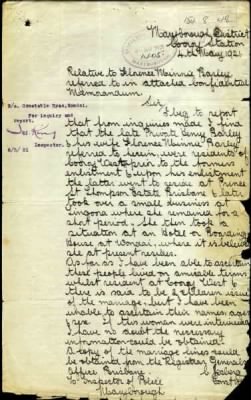 Maryborough District
Cooroy Station
4th May 1921
Relative to Florence Minnie Barley
referred to in attached confidential
Memorandum
Sir
I beg to report
that from inquiries made I find
that the late Private Percy Barley
& his wife Florence Minnie Barley
referred to herein were residents of
Cooroy West prior to the former's
enlistment & upon his enlistment
the latter went to reside at
Thompson Estate Brisbane & later
took over a small business at
where she remained for a
short period & she then took a
situation at an Hotel or Boarding
House at Wondai, where it is believed
she at present resides.
As far as I have been able to ascertain
these people lived on amicable terms
whilst resident at Cooroy West &
there is said to be issue
of the marriage, but I have been
unable to ascertain their names
ages & sex. If this woman were interviewed
I have no doubt the necessary
information could be obtained.
A copy of the marriage lines could be
obtained from the Registrar Generals
Office Brisbane.
To: Inspector of Police
Maryborough
B/c. Constable Ryan, Wondai.
For inquiry and
report.
Inspector.
6/5/21